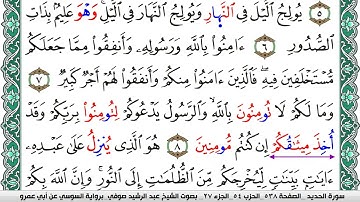 ٥ يُولِجُ ٱلَّيْلَ فِي ٱلنَّهارِ وَيُولِجُ ٱلنَّهَارَ فِي ٱلَّيْلِ وَهْوَ عَلِيمٌ بِذَاتِ
ٱلصُّدُورِ ٦ ءَامِنُواْ بِٱللَّهِ وَرَسُولِهِۦ وَأَنفِقُواْ مِمَّا جَعَلَكُم
مُّسْتَخْلَفِينَ فِيهِ فَٱلَّذِينَ ءَامَنُواْ مِنكُمْ وَأَنفَقُواْ لَهُمْ أَجْرٌ كَبِيرٌ ٧
وَمَا لَكُمْ لَا تُومِنُونَ بِٱللَّهِ وَٱلرَّسُولُ يَدْعُوكُمْ لِتُومِنُواْ بِرَبِّكُمْ وَقَدْ
أُخِذَ مِيثَٰقُكُمْ إِن كُنتُم مُّومِنِينَ ٨ هُوَ ٱلَّذِي يُنزِلُ عَلَىٰ عَبْدِهِۦ
ءَايَٰتٍ بَيِّنَٰتٍ لِّيُخْرِجَكُم مِّنَ ٱلظُّلُمَٰتِ إِلَى ٱلنُّورِ وَإِنَّ ٱللَّهَ بِكُمْ
سورة الحديد الصفحة ٥٣٨ الحزب ٥٤ الجزء ٢٧ بصوت الشيخ عبد الرشيد صوفي برواية السوسي عن أبي عمرو